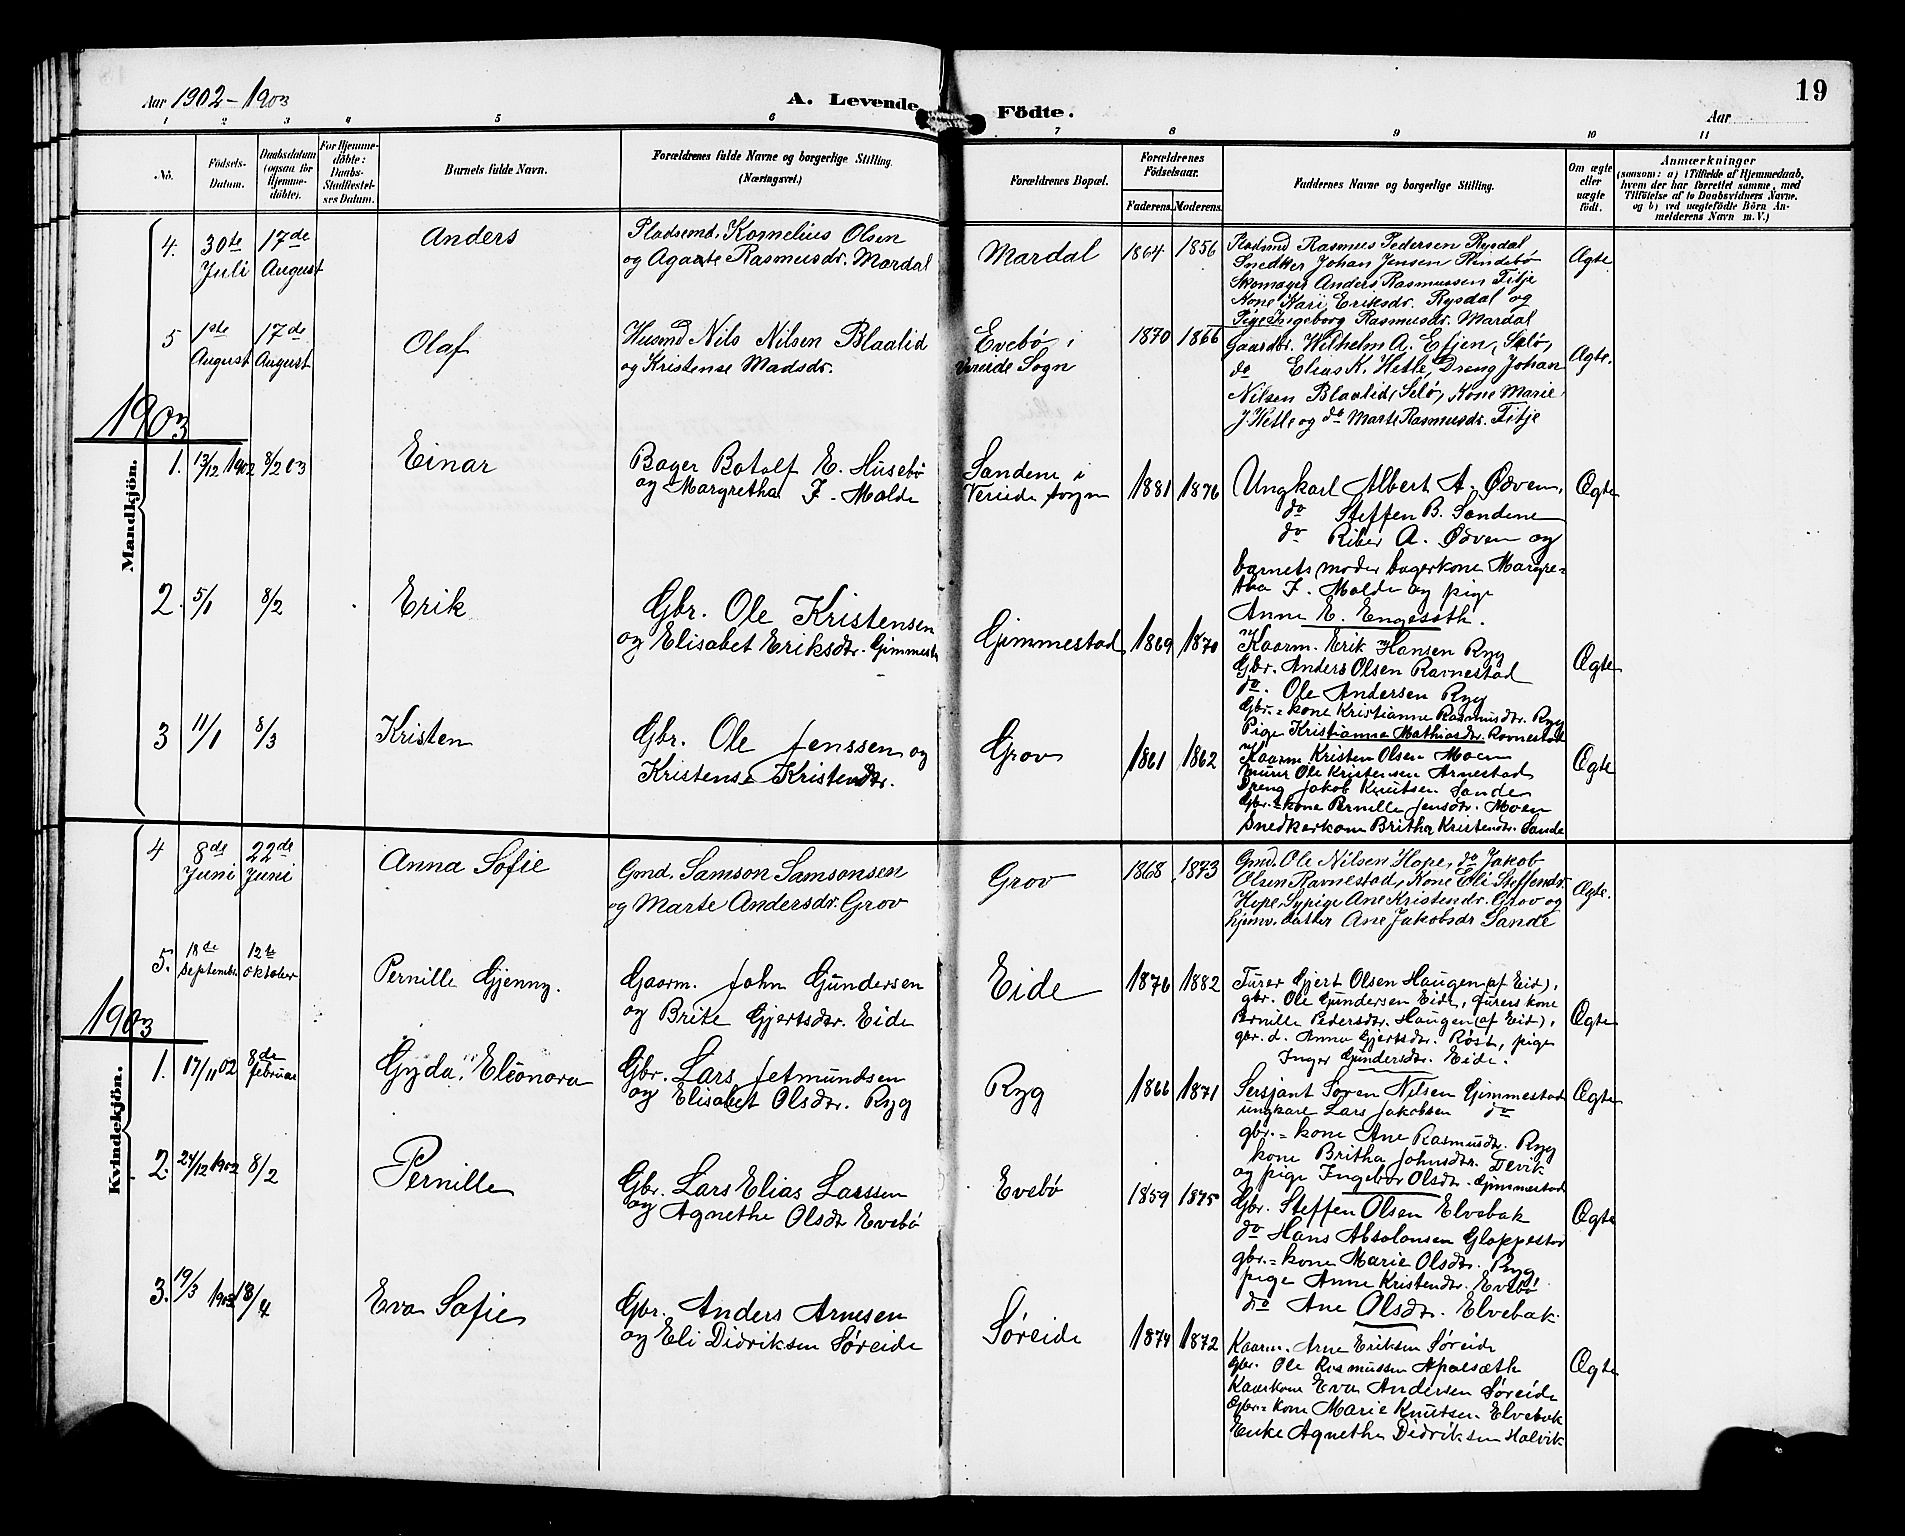 19
Aar 1902-1903
A. Levende Födte.
Aar
1 2 3 4 5 6 7 8 9 10 11
No.
Födsels-Datum.
Daabsdatum (ogsaa for Hjemme-döbte).
For Hjemme-döbte: Daabs-Stadfæstel-ses Datum.
Barnets fulde Navn.
Forældrenes fulde Navne og borgerlige Stilling. (Næringsvei.)
Forældrenes Bopæl.
Forældrenes Födselsaar.
Faderens. Moderens.
Faddernes Navne og borgerlige Stilling.
Om ægte eller uægte födt.
Anmærkninger
(saasom: a) i Tilfælde af Hjemmedaab, hvem der har forrettet samme, med Tilföielse af to Daabsvidners Navne. og b) ved uægtefödte Börn An-melderens Navn m. V.)
Mandkjön.
4. 30te Juli 17de August
Anders
Pladsmd. Kornelius Olsen
og Agaate Rasmusdr. Mardal
Mardal 1864 1856
Pladsmd Rasmus Pedersen Rysdal
Snedker Johan Jensen Rindebö
Skomager Anders Rasmussen Fitje
Kone Kari Eriksdr. Rysdal og
Pige Ingeborg Rasmusdr. Mardal
Ægte
5 1ste August 17de August
Olaf
Husmd Nils Nilsen Blaalid
og Kristense Madsdr.
Evebö i
Vereide Sogn
1870 1866
Gaardbr. Wilhelm A. Efjen, Selö,
do Elias K. Hetle, Dreng Johan
Nilsen Blaalid, Selö, Kone Marie
J. Hetle og do Marte Rasmusdr. Fitje
Ægte.
1903
1. 13/12 1902 8/2 03
Einar
Bager Botolf E. Husebö
og Margretha F. Molde
Sandene i
Vereide sogn
1881 1876
Ungkarl Albert A. Ødven,
do Steffen B. Sandene
do Riber A. Ødven og
barnets moder bagerkone Margre=
tha F. Molde og pige
Anne E. Engesæth.
Ægte
2. 5/1 8/2
Erik
Gbr. Ole Kristensen
og Elisabet Eriksdtr. Gimmest
Gimmestad 1869 1870
Kaarm. Erik Hansen Ryg
Gbr. Anders Olsen Ravnestad
do. Ole Andersen Ryg
Gbr.=kone Kristianne Rasmusdtr. Ryg
Pige Kristianne Mathiasdtr. Ravnestad
Ægte
3 11/1 8/3
Kristen
Gbr. Ole Jenssen og
Kristense Kristendtr.
Grov 1861 1862
Kaarm Kristen Olsen Moen
Murer Ole Kristensen Arnestad
Dreng Jakob Knutsen Sande
Gbr.=kone Pernille Jensdtr. Moen
Snedkerkone Britha Kristendtr. Sande
Ægte
Kvindekjön.
4 8de Juni 22de Juni
Anna Sofie
Gmd. Samson Samsonsen
og Marte Andersdr. Grov
Grov 1868 1873
Gmd. Ole Nilsen Hope, do Jakob
Olsen Ravnestad, Kone Eli Steffendr.
Hope, Sypige Ane Kristendr. Grov og
hjmv. datter Ane Jakobsdr Sande
Ægte.
5. 18de Septembr. 12te Oktober
Pernille Gjenny.
Gaarm. John Gundersen
og Brite Gjertsdtr. Eide
Eide 1876 1882
Furer Gjert Olsen Haugen (af Eid),
gbr. Ole Gundersen Eide, furers kone
Pernille Pedersdtr. Haugen (af Eid),
gbr. d. Anna Gjertsdtr. Röst, pige
Inger Gundersdtr. Eide.
Ægte
1903
1. 17/11 02 8de februar
Gyda Eleonora
Gbr. Lars Jetmundsen
og Elisabet Olsdtr. Ryg
Ryg 1866 1871
Sersjant Søren Nilsen Gimmestad
ungkare Lars Jakobsen do
gbr.=kone Ane Rasmusdtr. Ryg
kone Britha Johnsdtr. Devik
og pige Ingebor Olsdtr. Gimmestad
Ægte
2. 24/12 1902 8/2
Pernille
Gbr. Lars Elias Larssen
og Agnethe Olsdtr Evebö
Evebö 1859 1875
Gbr. Steffen Olsen Elvebak
do Hans Absolonsen Gloppestad
gbr.=kone Marie Olsdtr. Ryg
pige Anne Kristendtr. Evebö
do Ane Olsdtr. Elvebak.
Ægte
3. 19/3 1903 13/4
Eva Sofie
Gbr. Anders Arnesen
og Eli Didriksen Søreide
Søreide 1874 1872
Kaarm. Arne Eriksen Søreide
gbr. Ole Rasmussen Apalsæth
Kaarkone Eva Andersen Søreide
Gbr.=kone Marie Knutsen Elvebak
Enke Agnethe Didriksen Holvik
Ægte